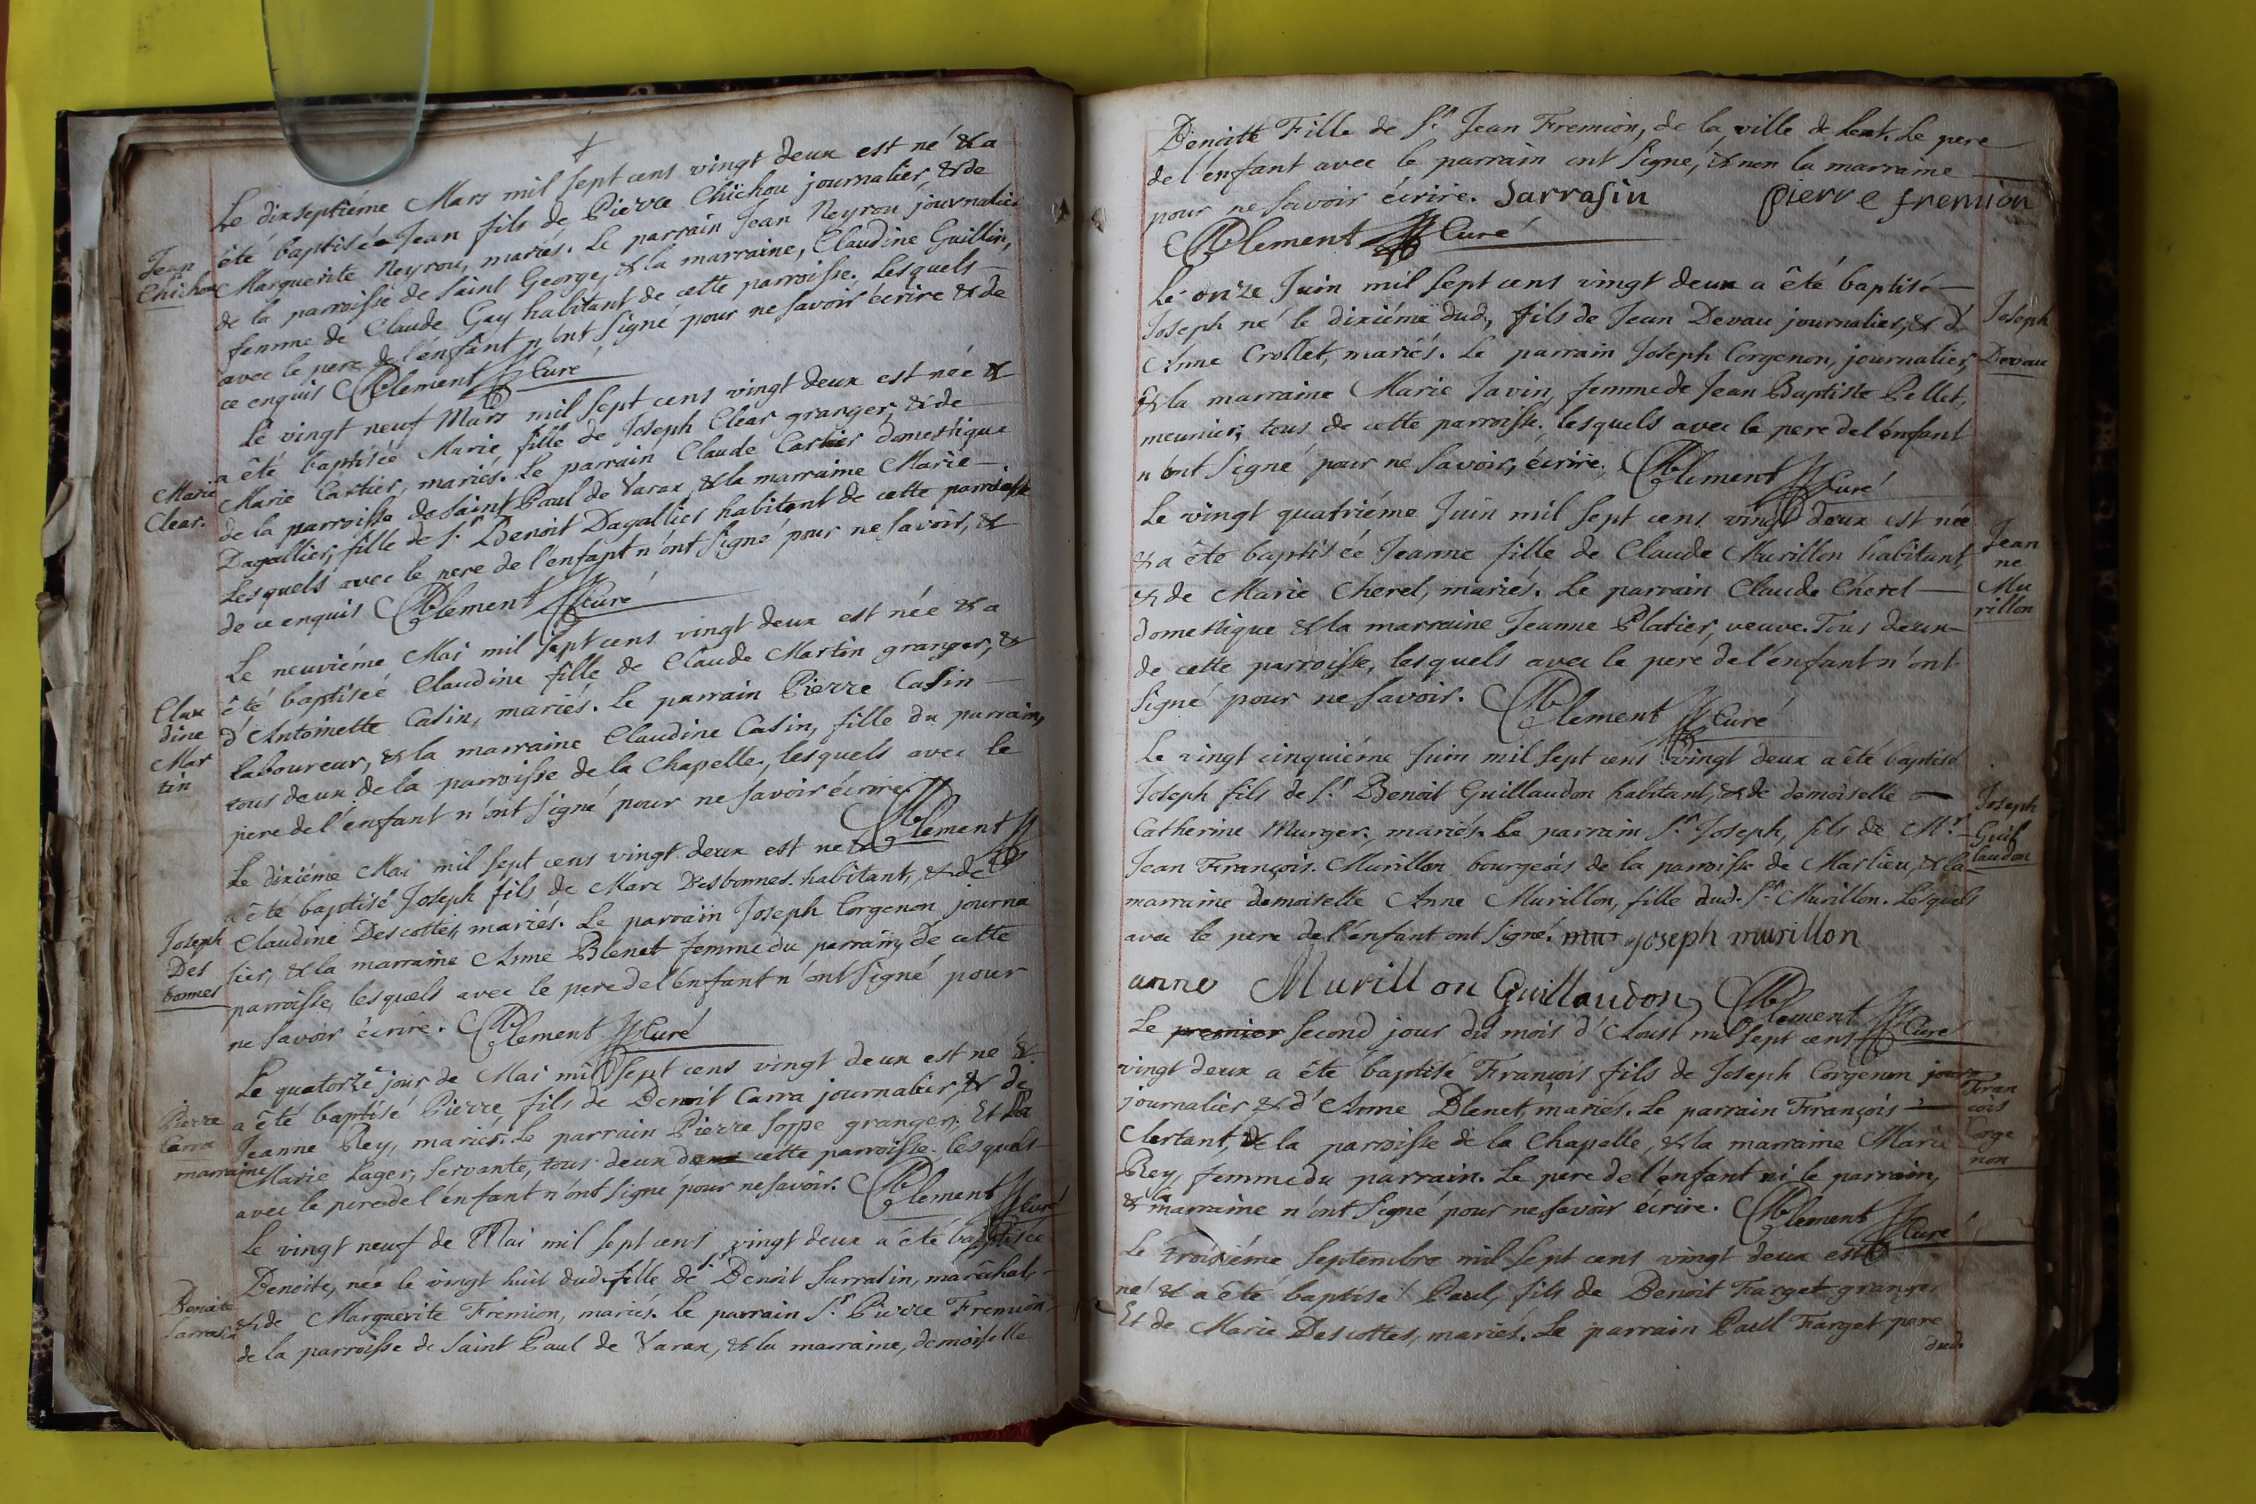 Le dixseptiéme Mars mil sept cens vingt deux est né & a
Jean
Chichou
été baptisé Jean fils de Pierre Chichou journalier, & de
Marguerite Neyrou, mariés. Le parrain Jean Neyrou journalier
de la parroisse de Saint George, & la marraine, Claudine Guillin,
femme de Claude Gay habitant de cette parroisse. Lesquels
avec le pere de l'enfant n'ont signé pour ne savoir écrire & de
ce enquis Clement Curé
Le vingt neuf Mars mil sept cens vingt deux est née &
Marie
Clear.
a êté baptisée Marie fille de Joseph Clear granger, & de
Marie Cartier, mariés. Le parrain Claude Cartier domestique
de la parroisse de Saint Paul de Varax, & la marraine Marie
Dagallier, fille de Sr. Benoit Dagallier habitant de cette parroisse
Lesquels avec le pere de l'enfant n'ont signé pour ne savoir, &
de ce enquis Clement Curé
Le neuviéme Mai mil sept cens vingt deux est née & a
Clau
dine
Mar
tin
êté baptiseé Claudine fille de Claude Martin granger, &
d'Antoinette Casin, mariés. Le parrain Pierre Casin
laboureur, & la marraine Claudine Casin, fille du parrain,
tous deux de la parroisse de la Chapelle, lesquels avec le
pere de l'enfant n'ont signé pour ne savoir écrire. Clement
Le dixiéme Mai mil sept cens vingt deux est né &
Joseph
Des
bonnes
a êté baptisé Joseph fils de Marc Desbonnes habitant, & de
Claudine Descottes, mariés. Le parrain Joseph Corgenon journa
lier, & la marraine Anne Blenet femme du parrain, De cette
parroisse, lesquels avec le pere de l'enfant n'ont signé pour
ne savoir écrire. Clement Curé
Le quatorzé jour de Mai mil sept cens vingt deux est né &
Pierre
Carra
a êté baptisé Pierre, fils de Benoit Carra journalier, & de
Jeanne Rey, mariés. Le parrain Pierre Soppe granger, Et La
marraine Marie Lager, servante, tous deux de cette parroisse. lesquels
avec le pere de l'enfant n'ont signé pour ne savoir. Clement Curé
Le vingt neuf de Mai mil sept cens vingt deux a êté baptisée
Benoite
Sarrasin
Benoite, née le vingt huit dud. fille de Sr. Benoit Sarrasin, maréchal,
& de Marguerite Fremion, mariés. Le parrain Sr. Pierre Fremion
de la parroisse de Saint Paul de Varax, & la marraine, demoiselle
Benoitte Fille de Sr. Jean Fremion, de la ville de Lent. Le pere
de l'enfant avec le parrain ont signé, & non la marraine
pour ne savoir écrire. Sarrasin pierre fremion
Clement Curé
Le onze Juin mil sept cens vingt deux a êté baptisé
Joseph
Devau
Joseph né le dixiéme dud., fils de Jean Devau journalier, & d'
Anne Crollet, mariés. Le parrain Joseph Corgenon, journalier,
& la marraine Marie Javin, femme de Jean Baptiste Pellet,
meunier, tous de cette parroisse, lesquels avec le pere de l'énfant
n'ont signé pour ne savoir, écrire. Clement Curé
Le vingt quatriéme Juin mil sept cens vingt deux est née
Jean
ne
Mu
rillon
& a êté baptisée Jeanne fille de Claude Murillon habitant,
& de Marie Cherel, mariés. Le parrain Claude Cherel
domestique & la marraine Jeanne Platier, veuve. Tous deux
de cette parroisse, lesquels avec le pere de l'énfant n'ont
signé pour ne savoir. Clement Curé
Le vingt cinquiéme Juin mil sept cens vingt deux a êté baptisé
Joseph
Guil
laudon
Joseph fils de Sr. Benoit Guillaudon habitant, & de demoiselle
Catherine Murger, mariés. Le parrain Sr. Joseph, fils de Mr.
Jean François Murillon bourgeois de la parroisse de Marlieu, & la
marraine demoiselle Anne Murillon, fille dud. Sr. Murillon. Lesquels
avec le pere de l'énfant ont signé. mur joseph murillon
anne Murillon Guillaudon, Clement Curé
Le premier second jour du mois d'Aoust mil sept cens
vingt deux a êté baptisé François fils de Joseph Corgenon jour
Fran
çois
Corge
non
journalier & d'Anne Blenet, mariés. Le parrain François
Clertant, de la parroisse de la Chapelle, & la marraine Marie
Rey, femme du parrain. Le pere de l'enfant ni le parrain,
& la marraine n'ont signé pour ne savoir écrire. Clement Curé
Le troisiéme Septembre mil sept cens vingt deux est
né & a êté baptisé Paul, fils de Benoit Farget granger
Et de Marie Descottes, mariés. Le parrain Paul Farget pere
dud.